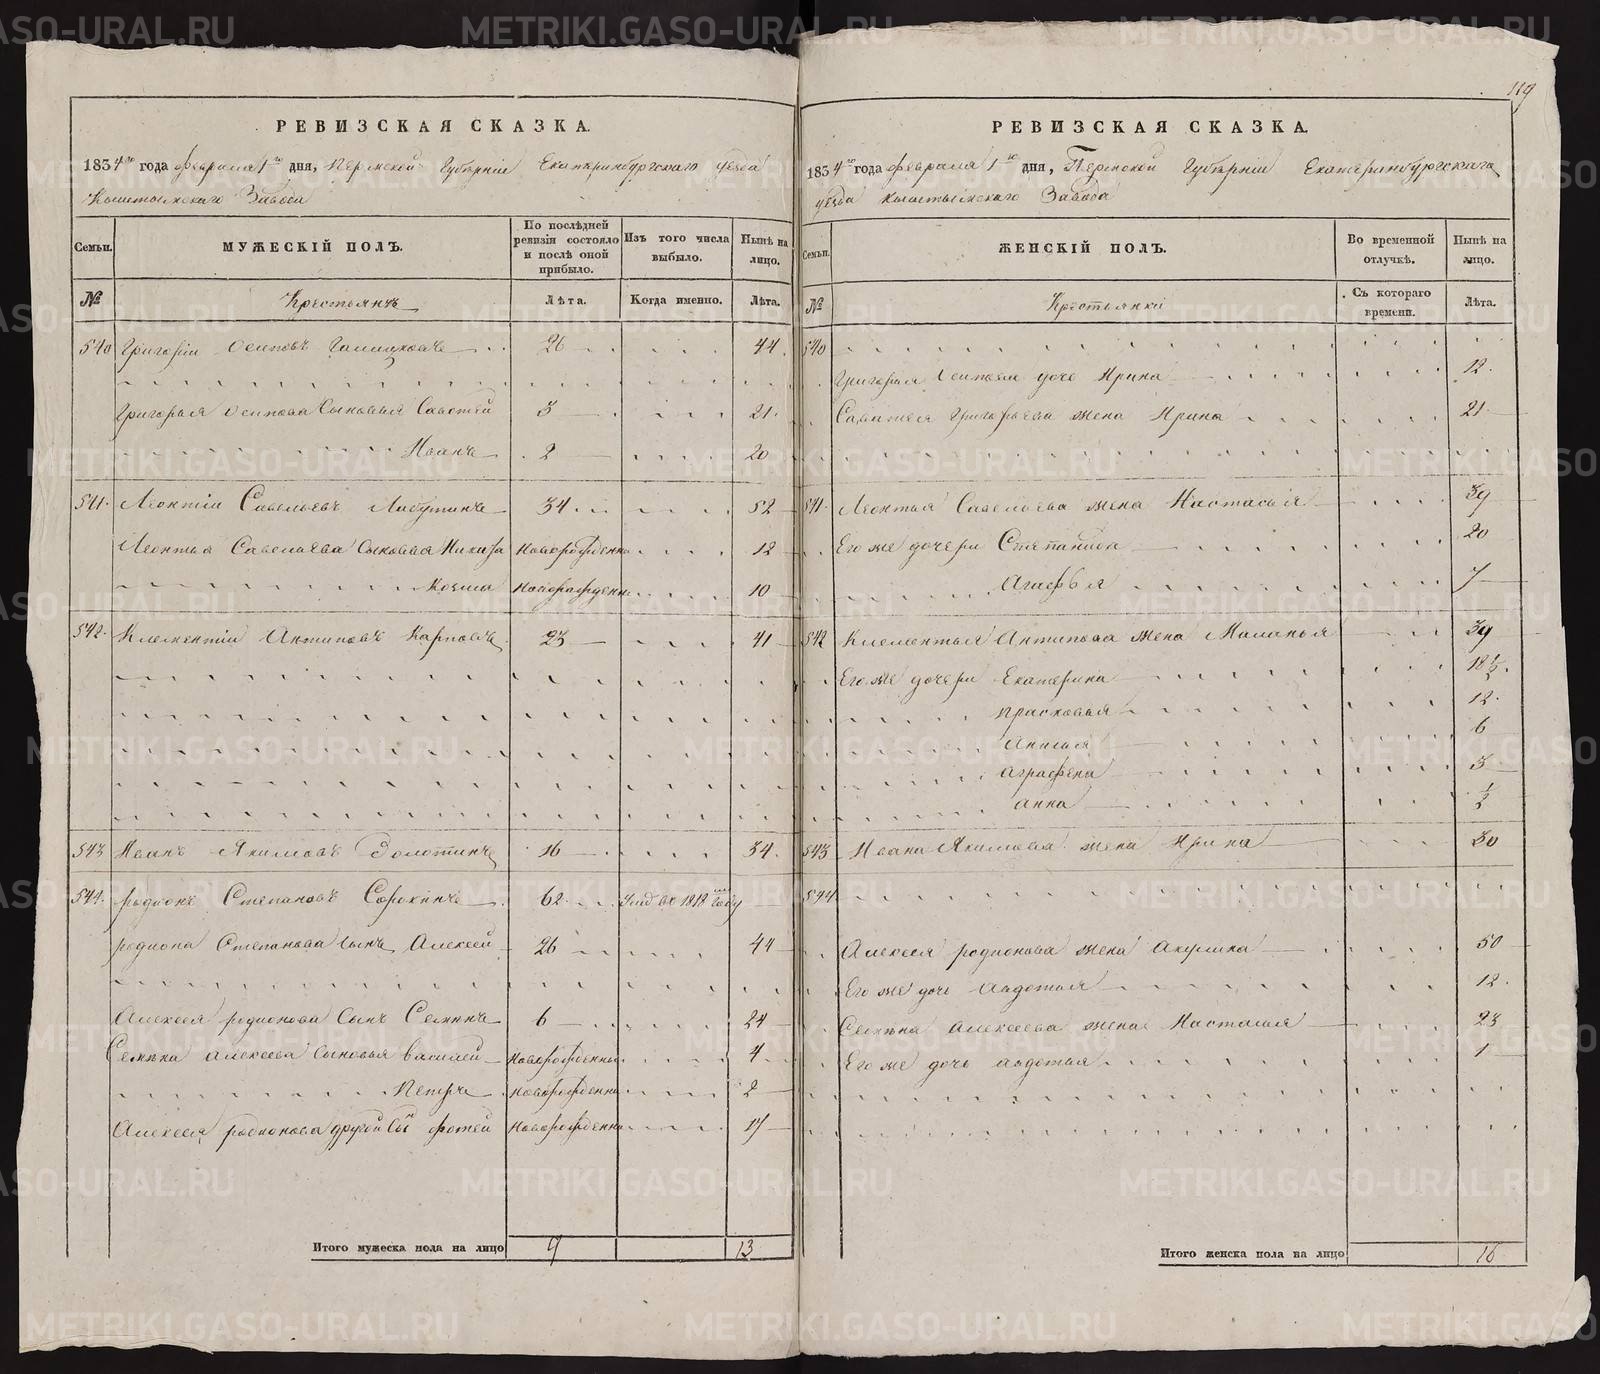 119
РЕВИЗСКАЯ СКАЗКА.
1834го года февраля 1го дня, Пермской Губерніи Екатеринбургскаго уезда
Кыштымскаго Завода
Семьи.
МУЖЕСКІЙ ПОЛЪ.
По послѣдней ревизіи состояло и послѣ оной прибыло.
Изъ того числа выбыло.
Нынѣ на лицо.
№
Крестьянъ
Лѣта.
Когда именно.
Лѣта.
540 Григорій Осиповъ 26 44.
Григорья Осипова Сыновья Савотей 3 21.
Иванъ 2 20
541. Леонтій Савельевъ 34 52
Леонтья Савельева Сыновья Никита Новорожденны 12
Козма Новорожденны 10
542. Клементій Антиповъ Карповъ 23 41
543 Иванъ Якимовъ Золотинъ 16 34.
544. родионъ Степановъ Сорокинъ 62 Умѣ въ 1818 году
родиона Степанова Сынъ Алексей 26 44
Алексея родионова Сынъ Семенъ 6 24
Семена алексеева Сыновья василей Новорожденны 4
Петръ Новорожденны 2
Алексея родионова другой Сы фотей Новорожденны 17
Итого мужеска пола на лицо 9 13
РЕВИЗСКАЯ СКАЗКА.
1834го года февраля 1го дня, Пермской Губерніи Екатеринбургскаго
уезда Кыштымскаго Завода
Семьи.
ЖЕНСКІЙ ПОЛЪ.
Во временной отлучкѣ.
Нынѣ на лицо.
№
Крестьянки
Съ котораго времени.
Лѣта.
540
Григорья Осипова дочь Ирина 12.
Савотея Григорьева жена Ирина 21
541. Леонтья Савельева жена Настасья 39
Его же дочери Степанида 20
Агафья 7
542 Клементья Антипова жена Маланья 39
Его же дочери Екатерина 18 1/2.
прасковья 12.
Анисья 6
аграфена 3
анна 1/2
543 Ивана Якимова жена Ирина 30
544.
Алексея родионова жена Акулина 50
Его же дочь авдотья 12.
Семена Алексеева жена Настасья 23
Его же дочь авдотья 1
Итого женска пола на лицо 16
METRIKI.GASO-URAL.RU